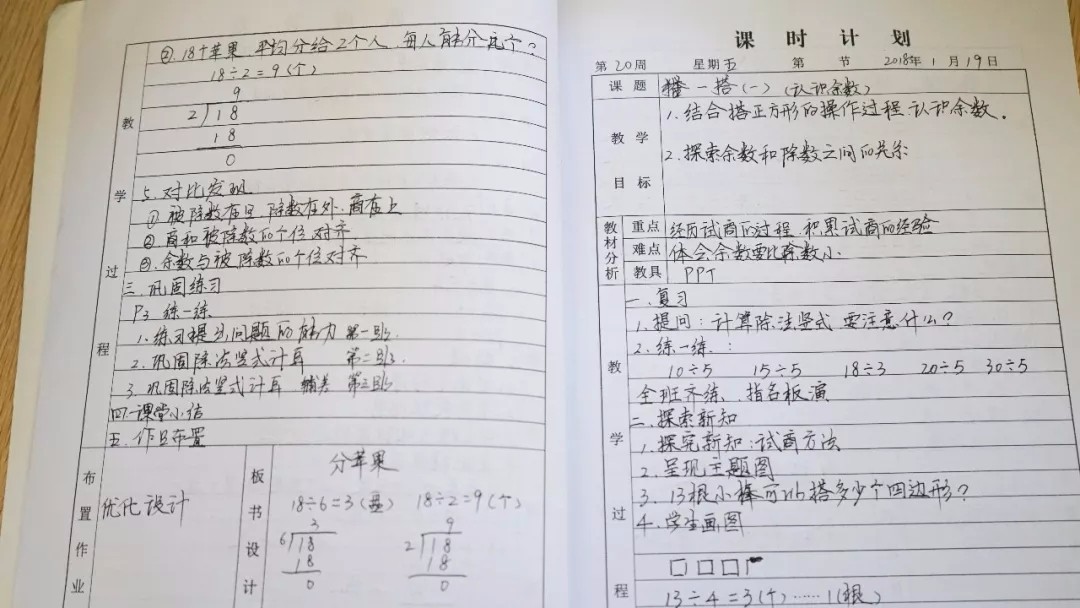 ②.18个苹果,平均分给2个人,每人能分几个?
18÷2=9(个)
9
2 18
18
0
5.对比发现
①被除数在里,除数在外,商在上
②商和被除数的个位对齐
③.余数与被除数的个位对齐
三.巩固练习
P3 练一练
1.练习提出问题的能力 第一题.
2.巩固除法竖式计算 第二题.
3.巩固除法竖式计算 第三题.
四.课堂小结
五.作业布置
教学过程
布置作业
优化设计
板书设计
分苹果
18÷6=3(盘) 18÷2=9(个)
3 9
6 18 2 18
18 18
0 0
课时计划
第20周 星期五 第 节 2018年1月19日
课题 搭一搭(一)(认识余数)
教学目标
1.结合搭正方形的操作过程认识余数.
2.探索余数和除数之间的关系
教材分析
重点 经历试商的过程,积累试商的经验
难点 体会余数要比除数小.
教具 PPT
教学过程
一.复习
1.提问:计算除法竖式要注意什么?
2.练一练:
10÷5 15÷5 18÷3 20÷5 30÷5
全班齐练,指名板演
二.探索新知
1.探究新知:试商方法
2.呈现主题图
3.13根小棒可以搭多少个四边形?
4.学生画图
13÷4=3(个)……1(根)